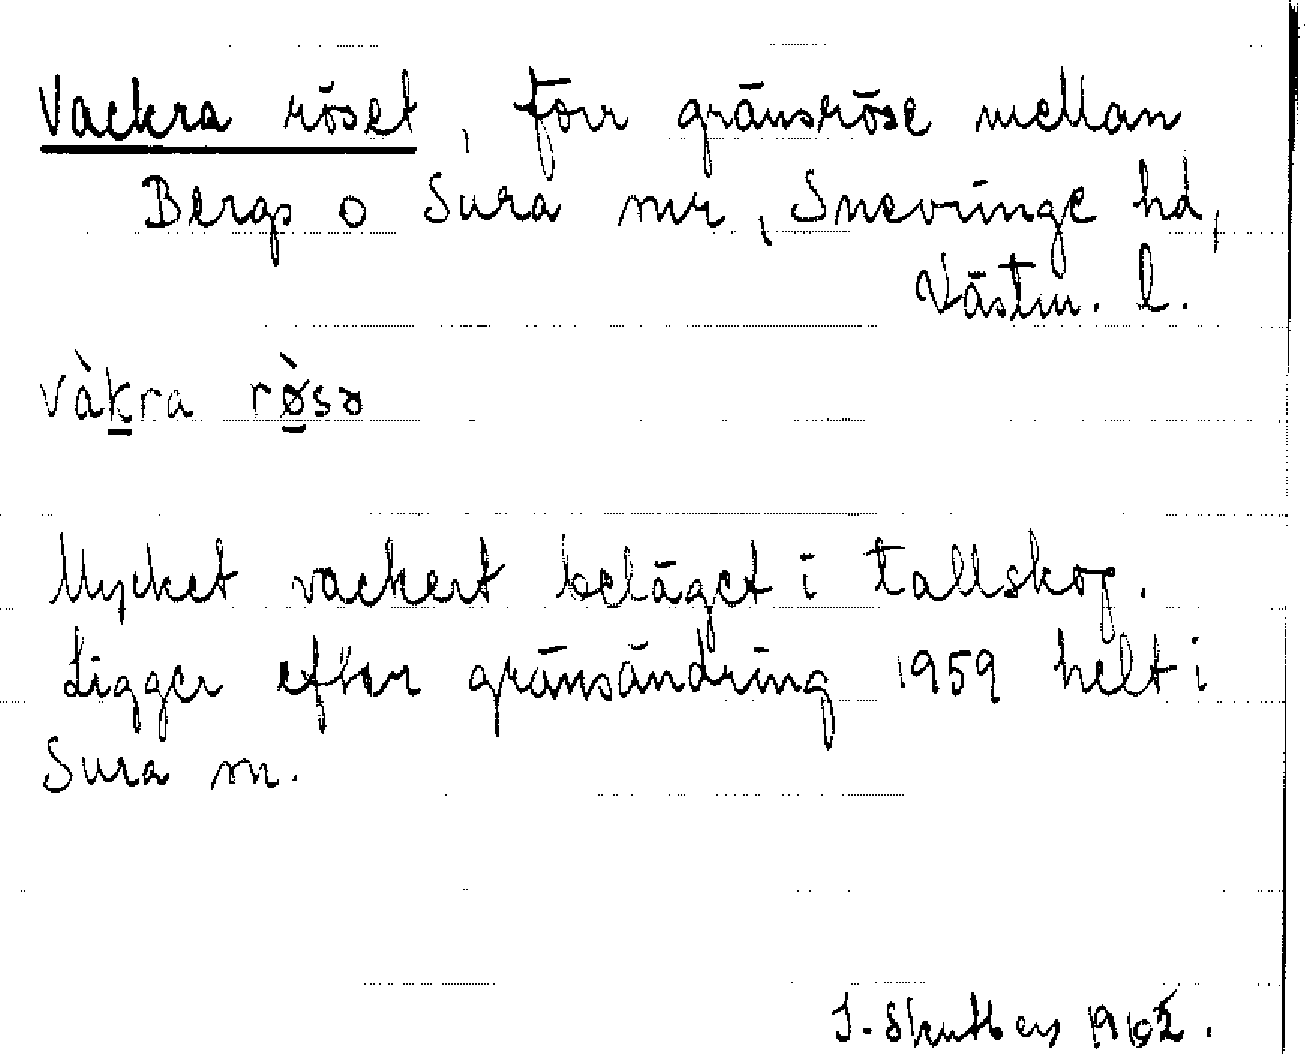 Vackra röset, förr gränsröse mellan
Bergs o Sura snr, Snevringe hd,
Västm. l.
vàkra rø̀sə
Mycket vackert beläget i tallskog.
Ligger efter gränsändring 1959 helt i
Sura sn.
J. Skutberg 1962.